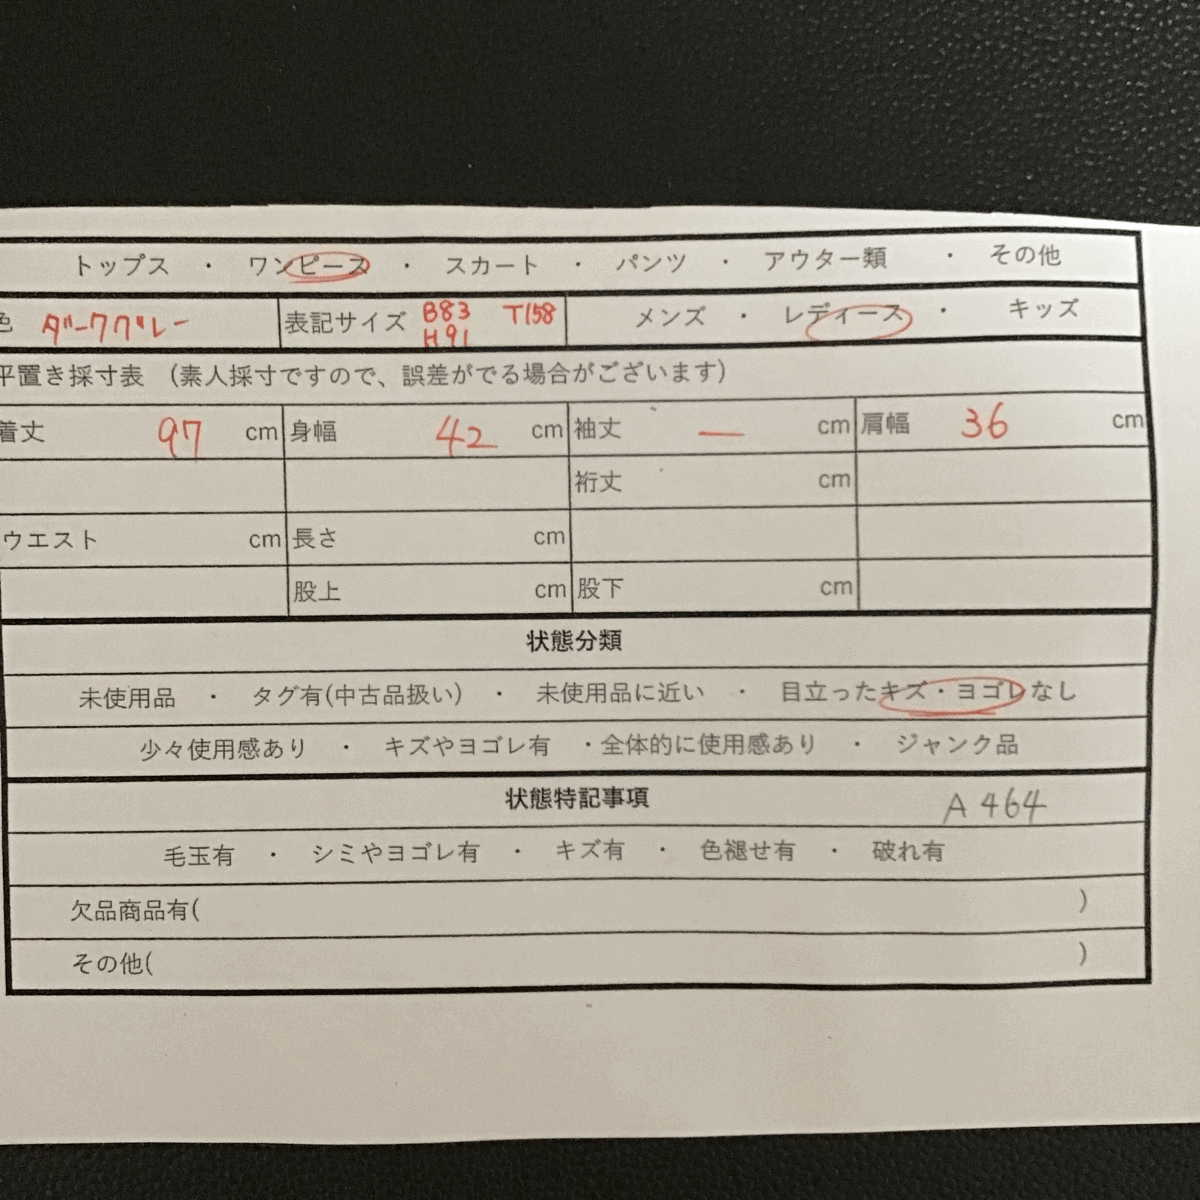 トップス ・ ワンピース ・ スカート ・ パンツ ・ アウター類 ・ その他
色 ダークグレー 表記サイズ B83 T158 H91 メンズ ・ レディース ・ キッズ
平置き採寸表 (素人採寸ですので、誤差がでる場合がございます)
着丈 97 cm 身幅 42 cm 袖丈 ー cm 肩幅 36 cm
裄丈 cm
ウエスト cm 長さ cm
股上 cm 股下 cm
状態分類
未使用品 ・ タグ有(中古品扱い) ・ 未使用品に近い ・ 目立ったキズ・ヨゴレなし
少々使用感あり ・ キズやヨゴレ有 ・全体的に使用感あり ・ ジャンク品
状態特記事項 A464
毛玉有 ・ シミやヨゴレ有 ・ キズ有 ・ 色褪せ有 ・ 破れ有
欠品商品有( )
その他( )